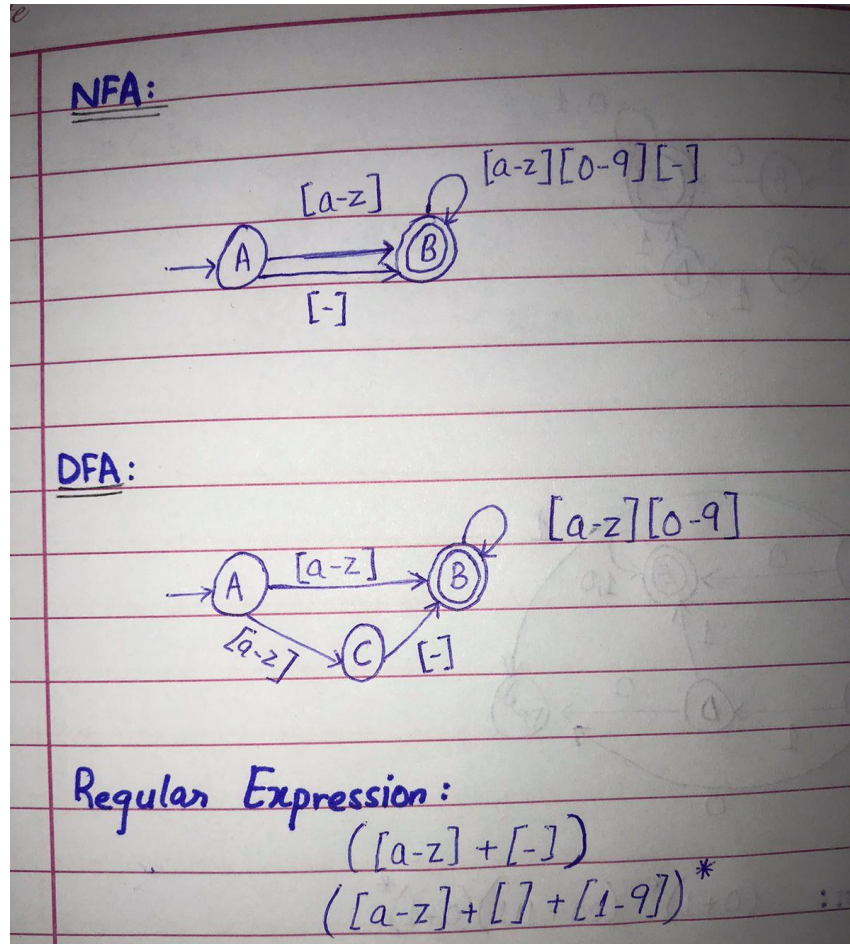 NFA:
[a-z]
[a-z][0-9][-]
A
B
[-]
DFA:
[a-z][0-9]
[a-z]
A
B
[a-z]
C
[-]
Regular Expression:
([a-z]+[-])
([a-z]+[ ]+[1-9])*